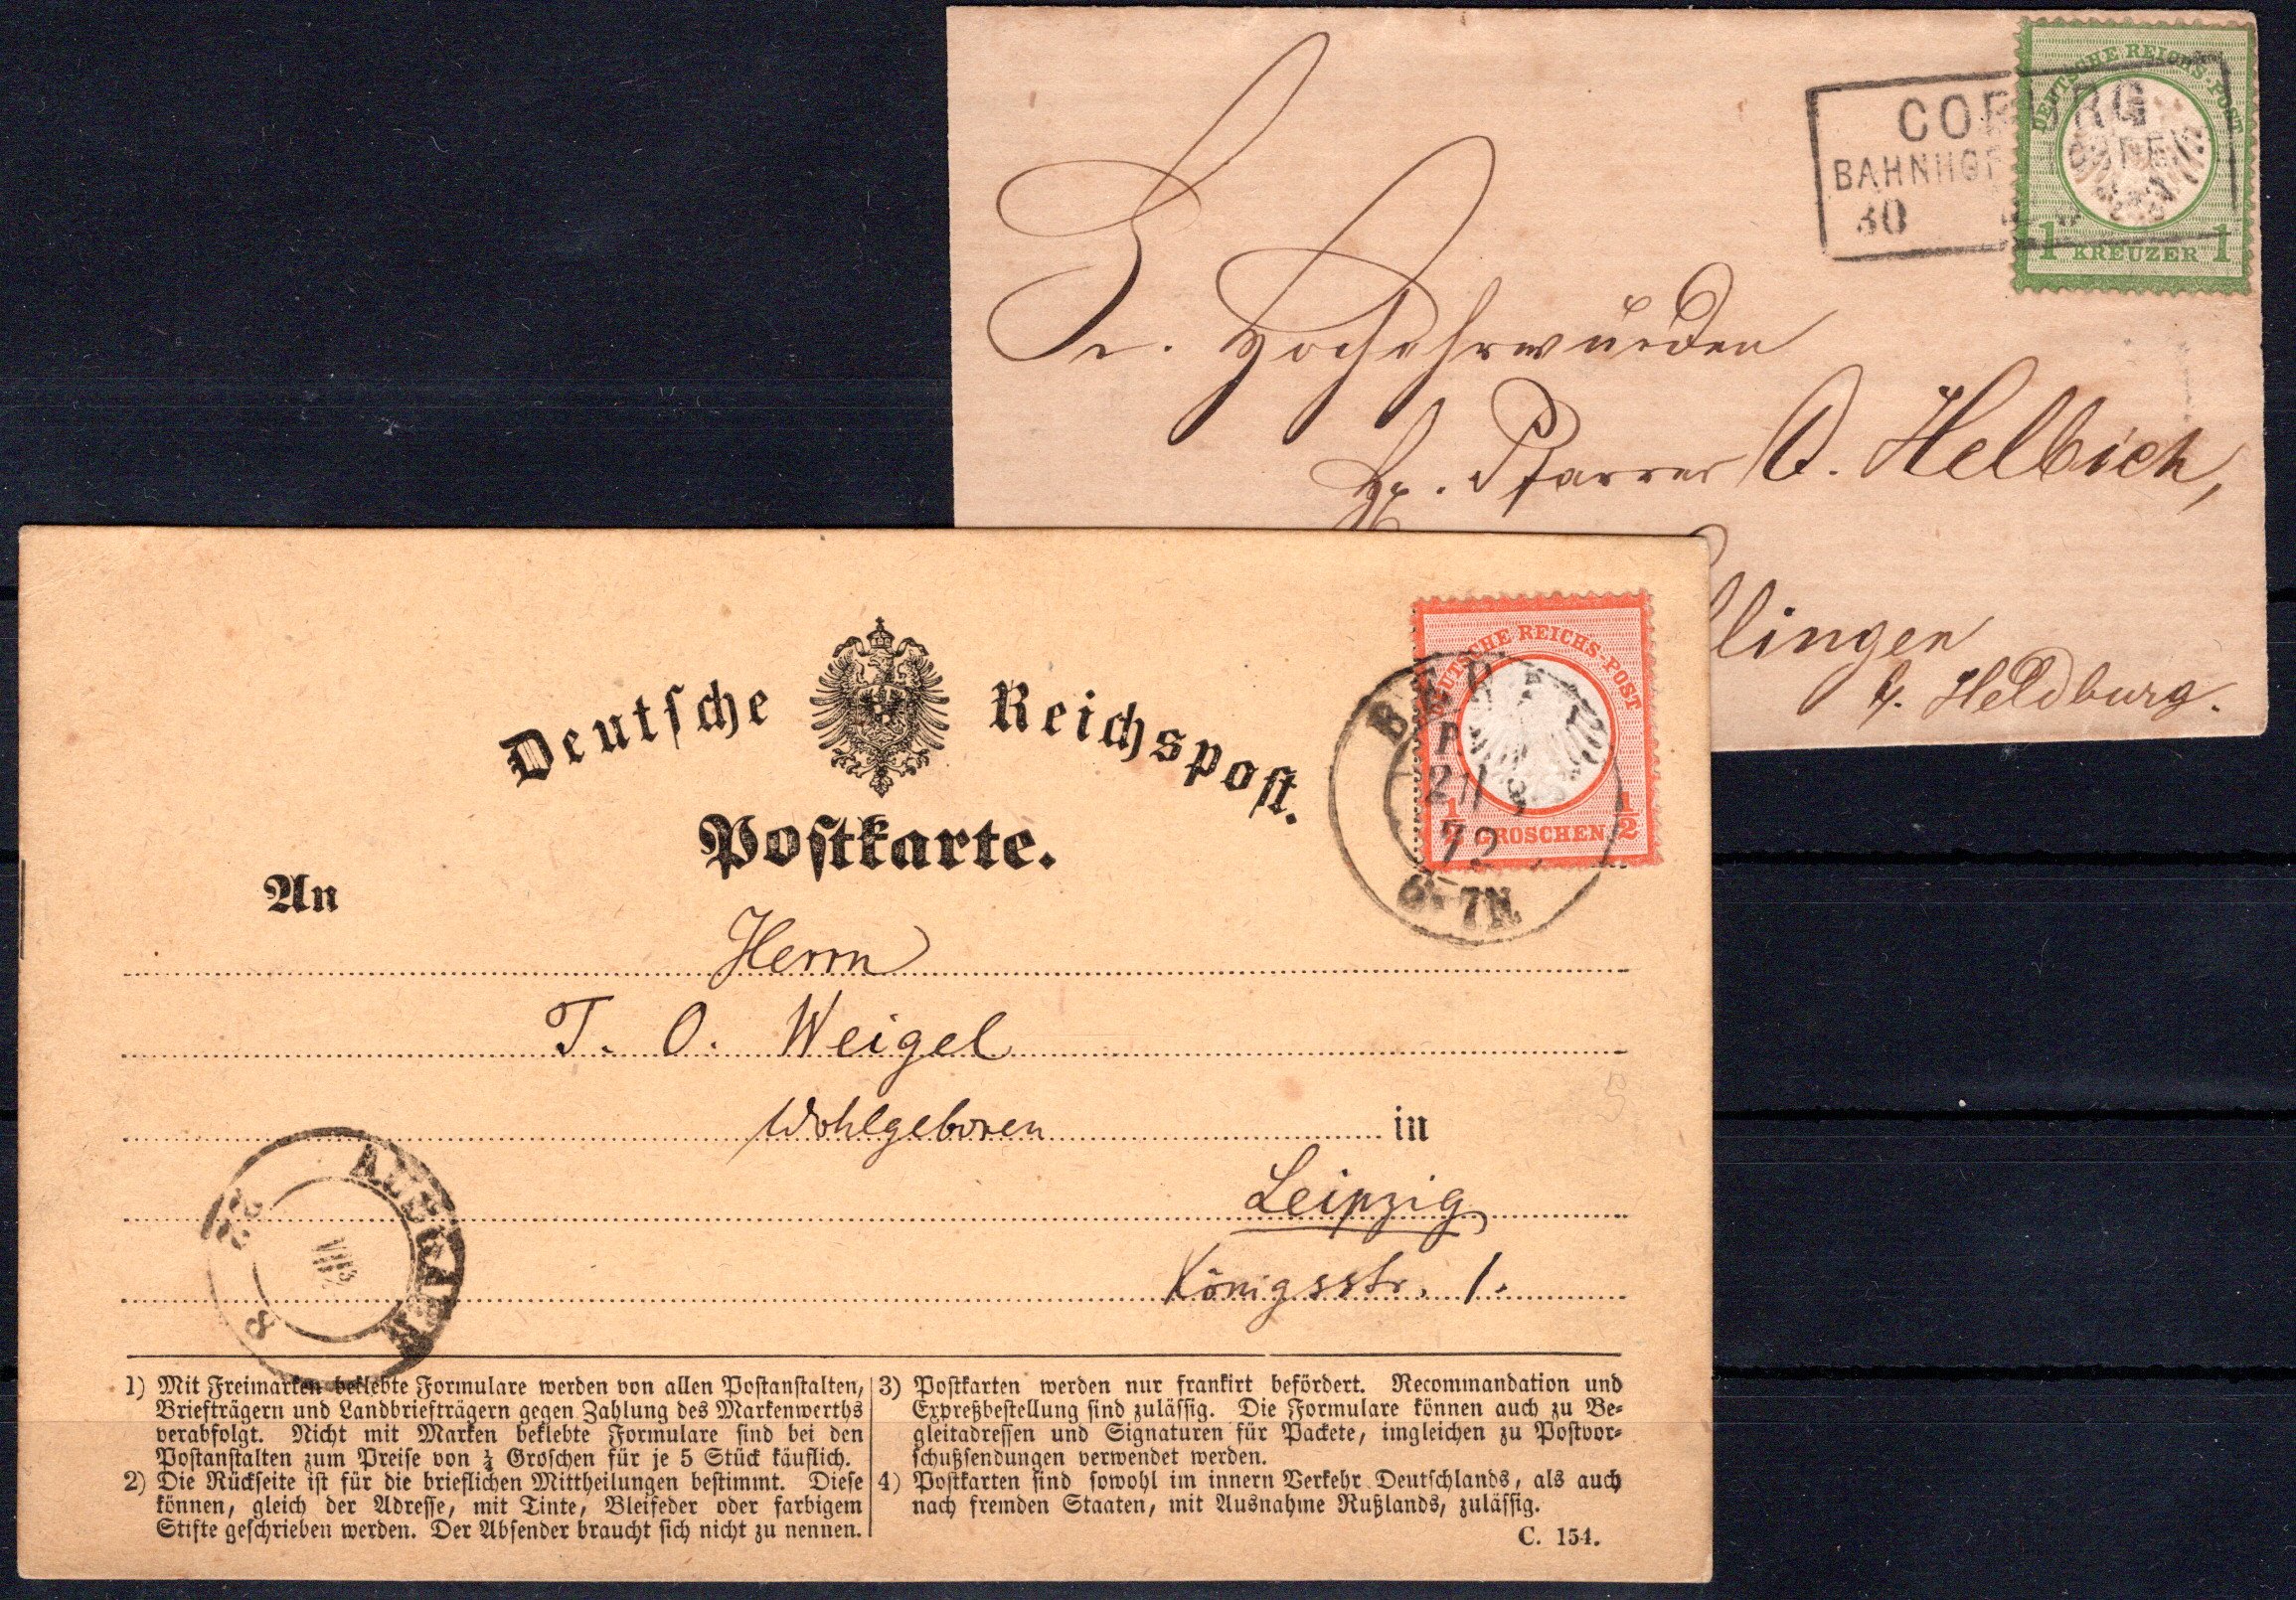 DEUTSCHE REICHS-POST
1 KREUZER 1
COBURG
BAHNHOF
30
Sr. Hochehrwürden
Hr. Pfarrer O. Helbich,
llingen
b. Heldburg.
Deutsche Reichspost.
Postkarte.
DEUTSCHE REICHS-POST
½ GROSCHEN ½
72
6-7N
An
Herrn
T. O. Weigel
Wohlgeboren in
Leipzig
Königsstr. 1.
22
VIII
8
1) Mit Freimarken beklebte Formulare werden von allen Postanstalten,
Briefträgern und Landbriefträgern gegen Zahlung des Markenwerths
verabfolgt. Nicht mit Marken beklebte Formulare sind bei den
Postanstalten zum Preise von ¼ Groschen für je 5 Stück käuflich.
2) Die Rückseite ist für die brieflichen Mittheilungen bestimmt. Diese
können, gleich der Adresse, mit Tinte, Bleifeder oder farbigem
Stifte geschrieben werden. Der Absender braucht sich nicht zu nennen.
3) Postkarten werden nur frankirt befördert. Recommandation und
Expreßbestellung sind zulässig. Die Formulare können auch zu Be-
gleitadressen und Signaturen für Packete, imgleichen zu Postvor-
schußsendungen verwendet werden.
4) Postkarten sind sowohl im innern Verkehr Deutschlands, als auch
nach fremden Staaten, mit Ausnahme Rußlands, zulässig.
C. 154.